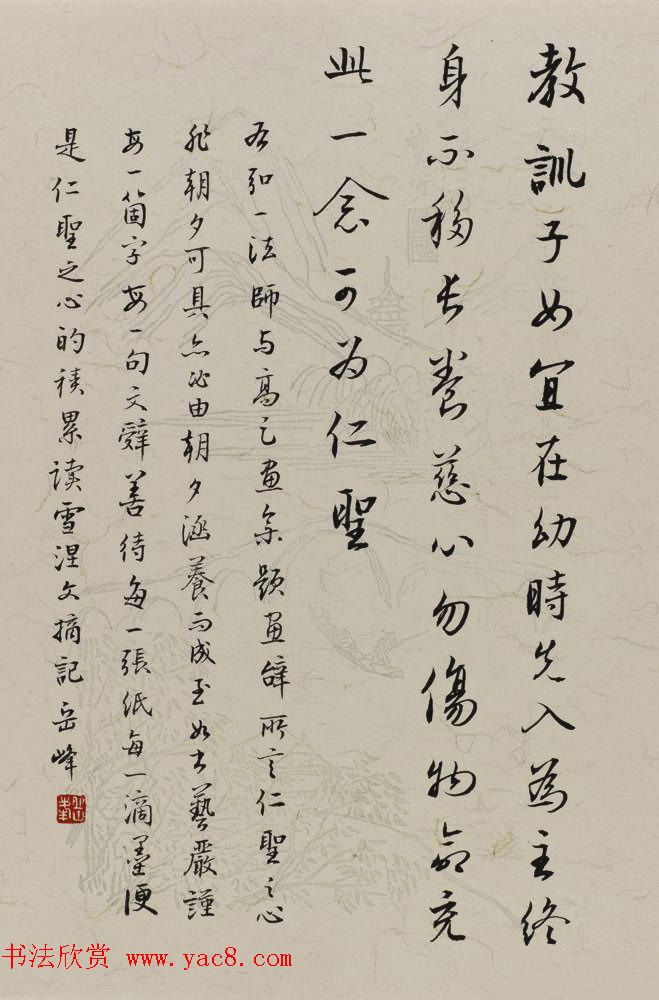 教訓子女宜在幼時先入為主終
身不移長養慈心勿傷物命充
此一念可为仁聖
右弘一法師与画集題画辭所言仁聖之心
非朝夕可具亦必由朝夕涵養而成至如书藝嚴謹
每一箇字每一句文辭善待每一張紙每一滴墨便
是仁聖之心的積累读雪涅文摘記岳峰
书法欣赏 www.yac8.com